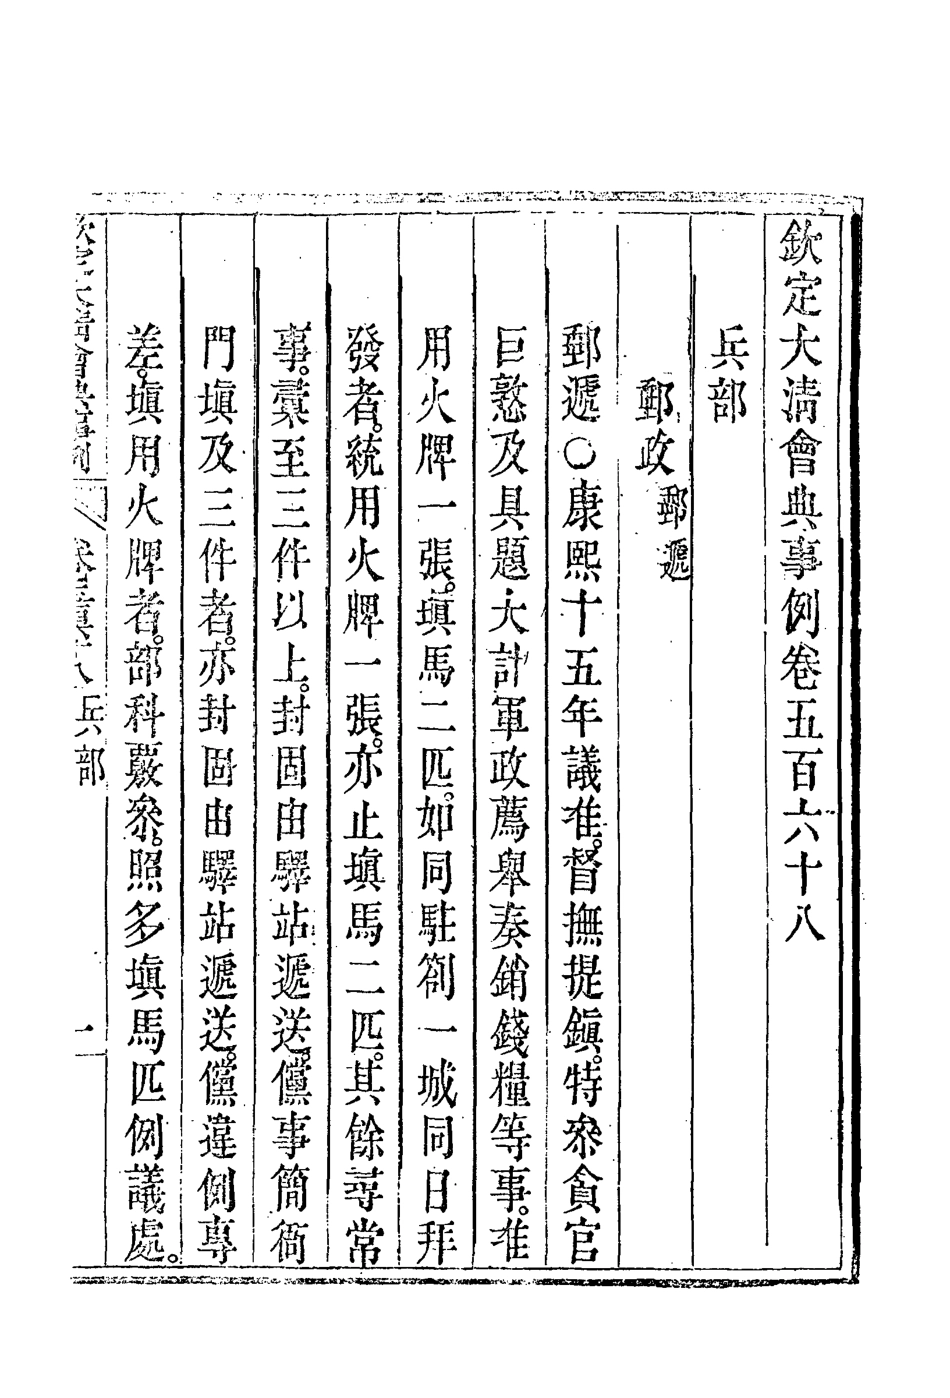 欽定大清會典事例卷五百六十八
兵部
郵政郵遞
郵遞○康熙十五年議准。督撫提鎭。特叅貪官
巨憝及具題大計軍政薦舉奏銷錢糧等事。准
用火牌一張。塡馬二匹。如同駐劄一城同日拜
發者。統用火牌一張。亦止塡馬二匹。其餘尋常
事。彙至三件以上。封固由驛站遞送。儻事簡衙
門塡及三件者。亦封固由驛站遞送。儻違例專
差。塡用火牌者。部科覈叅。照多塡馬匹例議處。
欽定大清會典事例 卷五百六十八 兵部 一